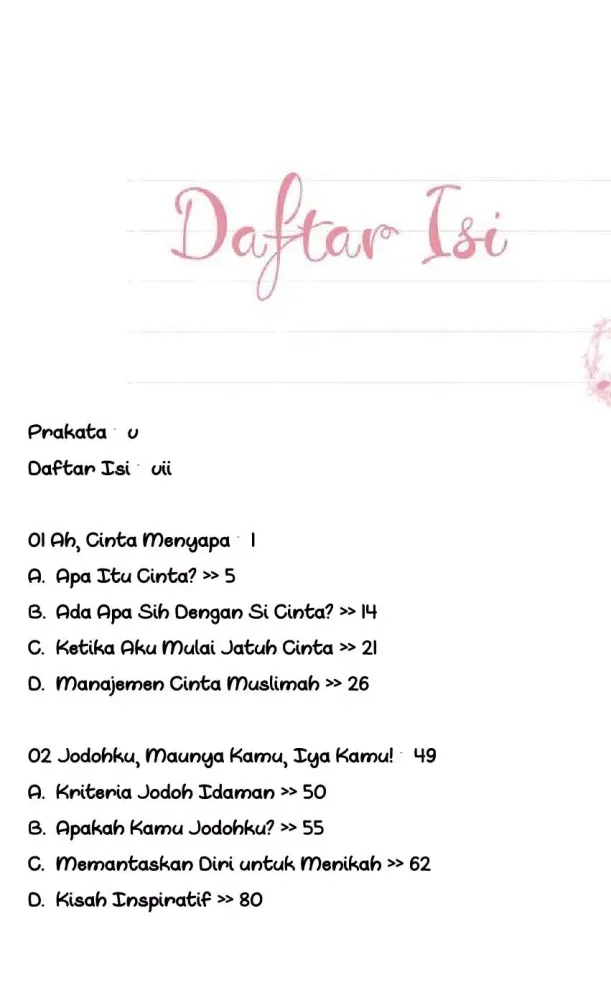 Daftar Isi
Prakata - v
Daftar Isi - vii
01 Ah, Cinta Menyapa - 1
A. Apa Itu Cinta? >> 5
B. Ada Apa Sih Dengan Si Cinta? >> 14
C. Ketika Aku Mulai Jatuh Cinta >> 21
D. Manajemen Cinta Muslimah >> 26
02 Jodohku, Maunya Kamu, Iya Kamu! - 49
A. Kriteria Jodoh Idaman >> 50
B. Apakah Kamu Jodohku? >> 55
C. Memantaskan Diri untuk Menikah >> 62
D. Kisah Inspiratif >> 80